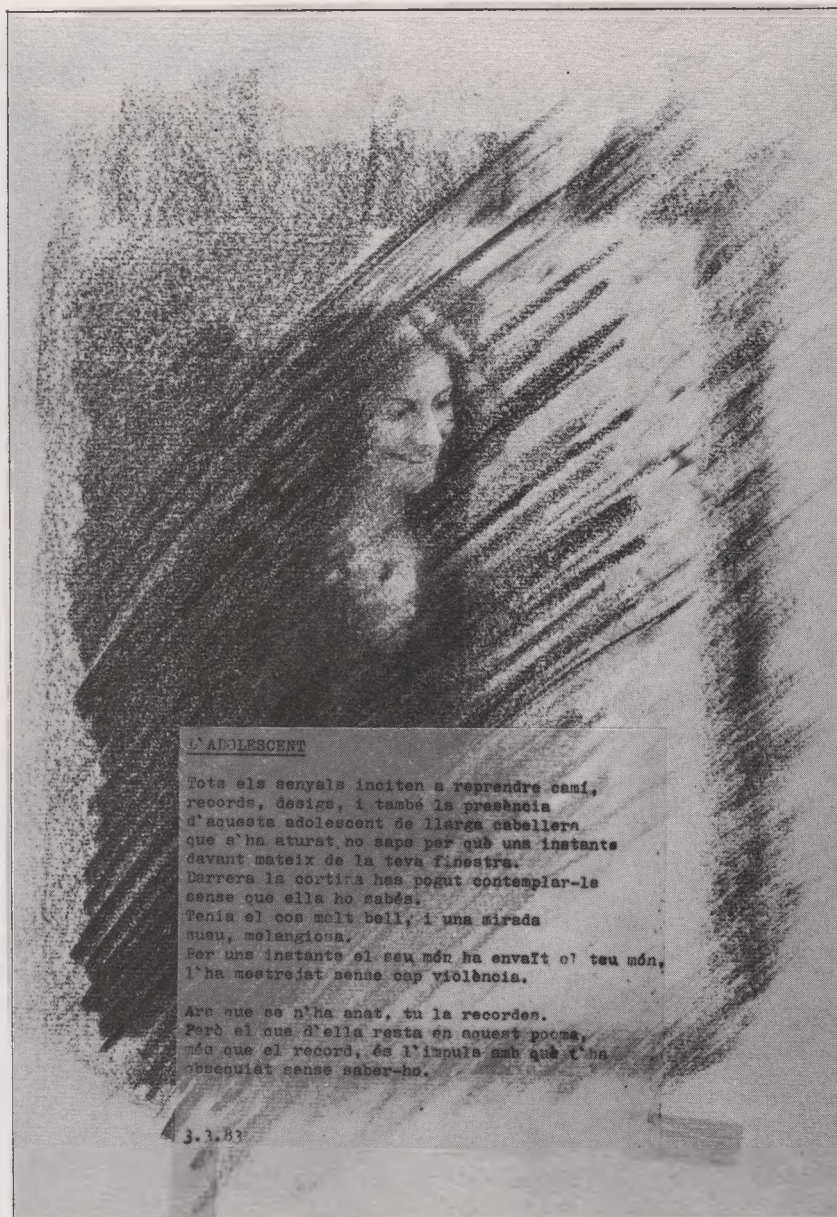 L'ADOLESCENT
Tots els senyals inciten a reprendre camí,
records, desigs, i també la presència
d'aquesta adolescent de llarga cabellera
que s'ha aturat no saps per què uns instants
davant mateix de la teva finestra.
Darrera la cortina has pogut contemplar-la
sense que ella ho sabés.
Tenia el cos molt bell, i una mirada
suau, melangiosa.
Per uns instants el seu món ha envaït el teu món,
l'ha mestrejat sense cap violència.
Ara que se n'ha anat, tu la recordes.
Però el que d'ella resta en aquest poema,
més que el record, és l'impuls amb què t'ha
obsequiat sense saber-ho.
3.3.83